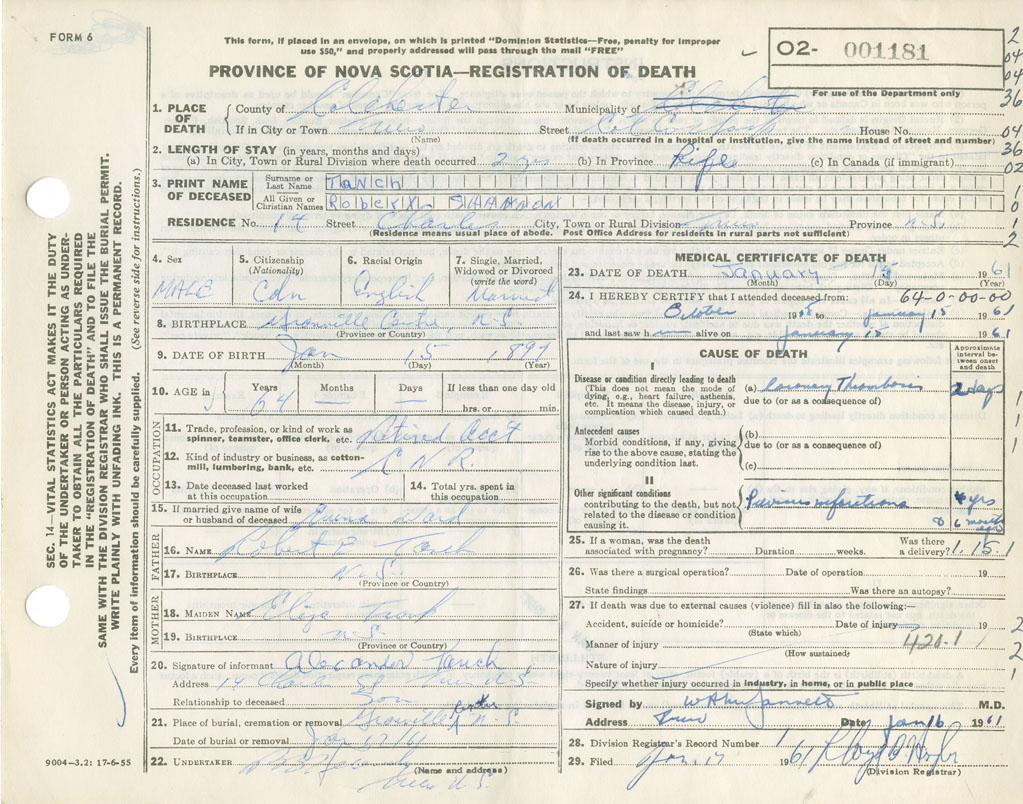 FORM 6
This form, if placed in an envelope, on which is printed "Dominion Statistics—Free, penalty for improper
use $50," and properly addressed will pass through the mail "FREE"
PROVINCE OF NOVA SCOTIA—REGISTRATION OF DEATH
02- 001181
For use of the Department only
2
04
04
36
04
36
02
1
0
1
2
1. PLACE OF DEATH
County of Colchester Municipality of Colchester
If in City or Town Truro Street House No.
(Name) (If death occurred in a hospital or institution, give the name instead of street and number)
2. LENGTH OF STAY (in years, months and days)
(a) In City, Town or Rural Division where death occurred 2 yrs (b) In Province Life (c) In Canada (if immigrant)
3. PRINT NAME OF DECEASED
Surname or Last Name TANCH
All Given or Christian Names ROBERT SHANNON
RESIDENCE No. 14 Street Charles City, Town or Rural Division Truro Province N.S.
(Residence means usual place of abode. Post Office Address for residents in rural parts not sufficient)
4. Sex MALE
5. Citizenship (Nationality) Cdn
6. Racial Origin English
7. Single, Married, Widowed or Divorced (write the word) Married
8. BIRTHPLACE Granville Centre, N-S.
(Province or Country)
9. DATE OF BIRTH Jan 15 1897
(Month) (Day) (Year)
10. AGE in Years 64 Months — Days — If less than one day old
hrs. or min.
OCCUPATION
11. Trade, profession, or kind of work as spinner, teamster, office clerk, etc. Retired Acct
12. Kind of industry or business, as cotton-mill, lumbering, bank, etc. C N R.
13. Date deceased last worked at this occupation
14. Total yrs. spent in this occupation
15. If married give name of wife or husband of deceased Ward
FATHER
16. NAME Robert Tanch
17. BIRTHPLACE N-S.
(Province or Country)
MOTHER
18. MAIDEN NAME Eliza
19. BIRTHPLACE N-S
(Province or Country)
20. Signature of informant Alexander Tanch
Address 14 Charles St Truro N.S.
Relationship to deceased Son
21. Place of burial, cremation or removal Granville Centre N-S.
Date of burial or removal Jan 17/61
22. UNDERTAKER
(Name and address)
Truro N.S.
9004—3.2: 17-6-55
MEDICAL CERTIFICATE OF DEATH
23. DATE OF DEATH January 15 1961
(Month) (Day) (Year)
24. I HEREBY CERTIFY that I attended deceased from: 64-0-00-00
October 1958 to January 15 1961
and last saw h alive on January 15 1961
CAUSE OF DEATH
Approximate interval between onset and death
I
Disease or condition directly leading to death
(This does not mean the mode of dying, e.g., heart failure, asthenia, etc. It means the disease, injury, or complication which caused death.)
(a) Coronary Thrombosis 2 days
due to (or as a consequence of)
Antecedent causes
Morbid conditions, if any, giving rise to the above cause, stating the underlying condition last.
(b)
due to (or as a consequence of)
(c)
II
Other significant conditions
contributing to the death, but not related to the disease or condition causing it.
Previous infarctions 4 yrs
8 6 months
25. If a woman, was the death associated with pregnancy? Duration weeks. Was there a delivery? 1.15.1
26. Was there a surgical operation? Date of operation 19
State findings Was there an autopsy?
27. If death was due to external causes (violence) fill in also the following:—
Accident, suicide or homicide? Date of injury 19
(State which)
Manner of injury 420.1
(How sustained)
Nature of injury
Specify whether injury occurred in industry, in home, or in public place
Signed by M.D.
Address Truro Date Jan 16 1961
28. Division Registrar's Record Number 1
29. Filed Jan. 17 1961
(Division Registrar)
SEC. 14—VITAL STATISTICS ACT MAKES IT THE DUTY
OF THE UNDERTAKER OR PERSON ACTING AS UNDER-
TAKER TO OBTAIN ALL THE PARTICULARS REQUIRED
IN THE "REGISTRATION OF DEATH" AND TO FILE THE
SAME WITH THE DIVISION REGISTRAR WHO SHALL ISSUE THE BURIAL PERMIT.
WRITE PLAINLY WITH UNFADING INK. THIS IS A PERMANENT RECORD.
Every item of information should be carefully supplied. (See reverse side for instructions.)